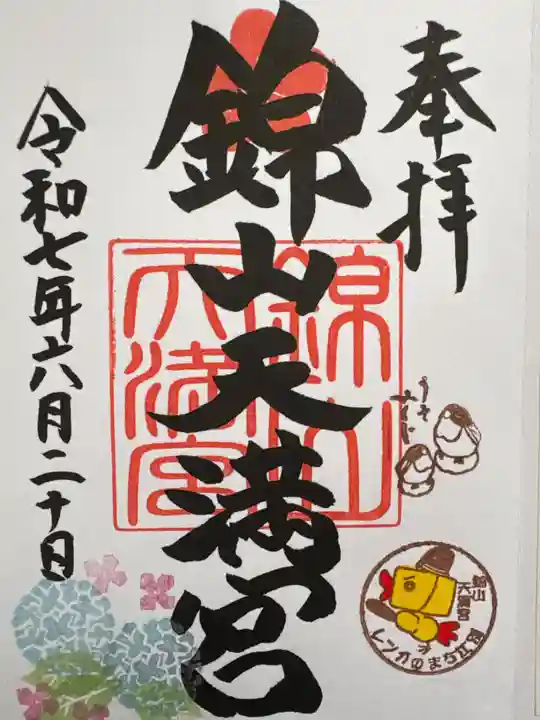 奉拝
錦山天満宮
令和七年六月二十日
錦山
天満宮
うそ
みくじ
錦山
天満宮
レンガのまち江別